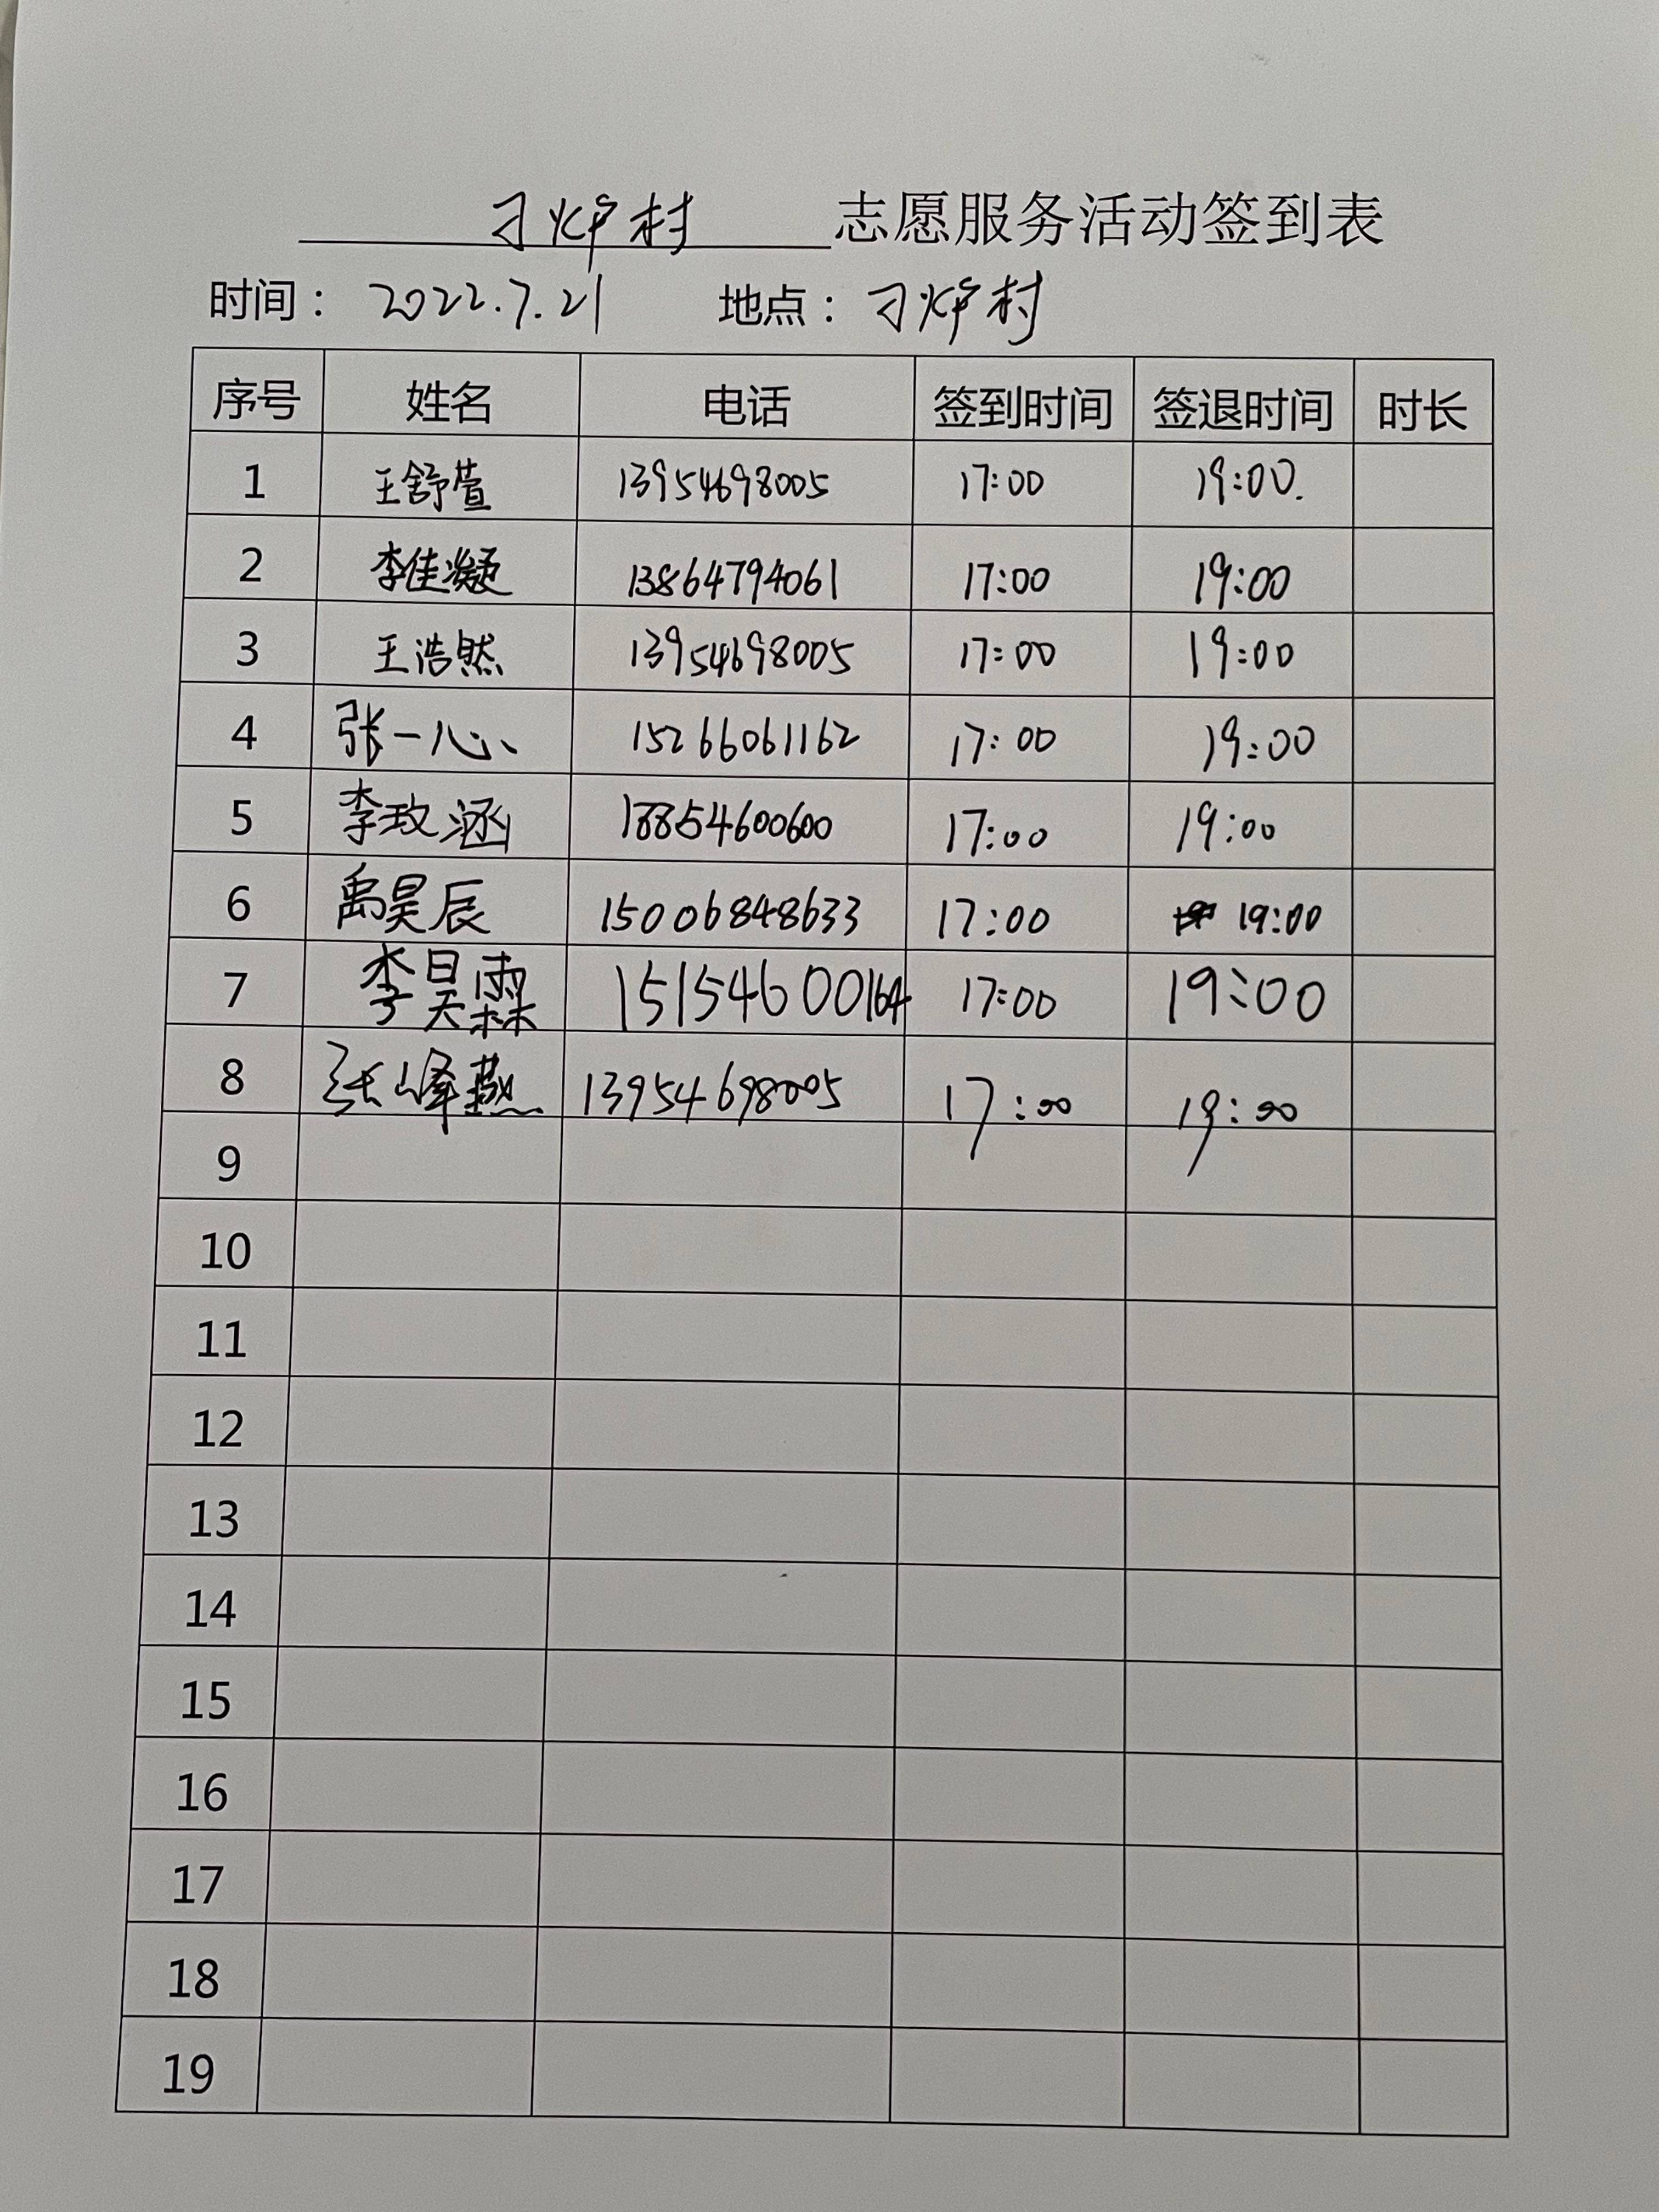 刁炉村 志愿服务活动签到表
时间： 2022.7.21 地点： 刁炉村
序号 姓名 电话 签到时间 签退时间 时长
1 王舒萱 13954698005 17:00 19:00.
2 李佳凝 13864794061 17:00 19:00
3 王浩然 13954698005 17:00 19:00
4 张一心 15266061162 17:00 19:00
5 李玟涵 18854600600 17:00 19:00
6 禹昊辰 15006848633 17:00 19:00
7 李昊霖 15154600164 17:00 19:00
8 张峰燕 13954698005 17:00 19:00
9
10
11
12
13
14
15
16
17
18
19